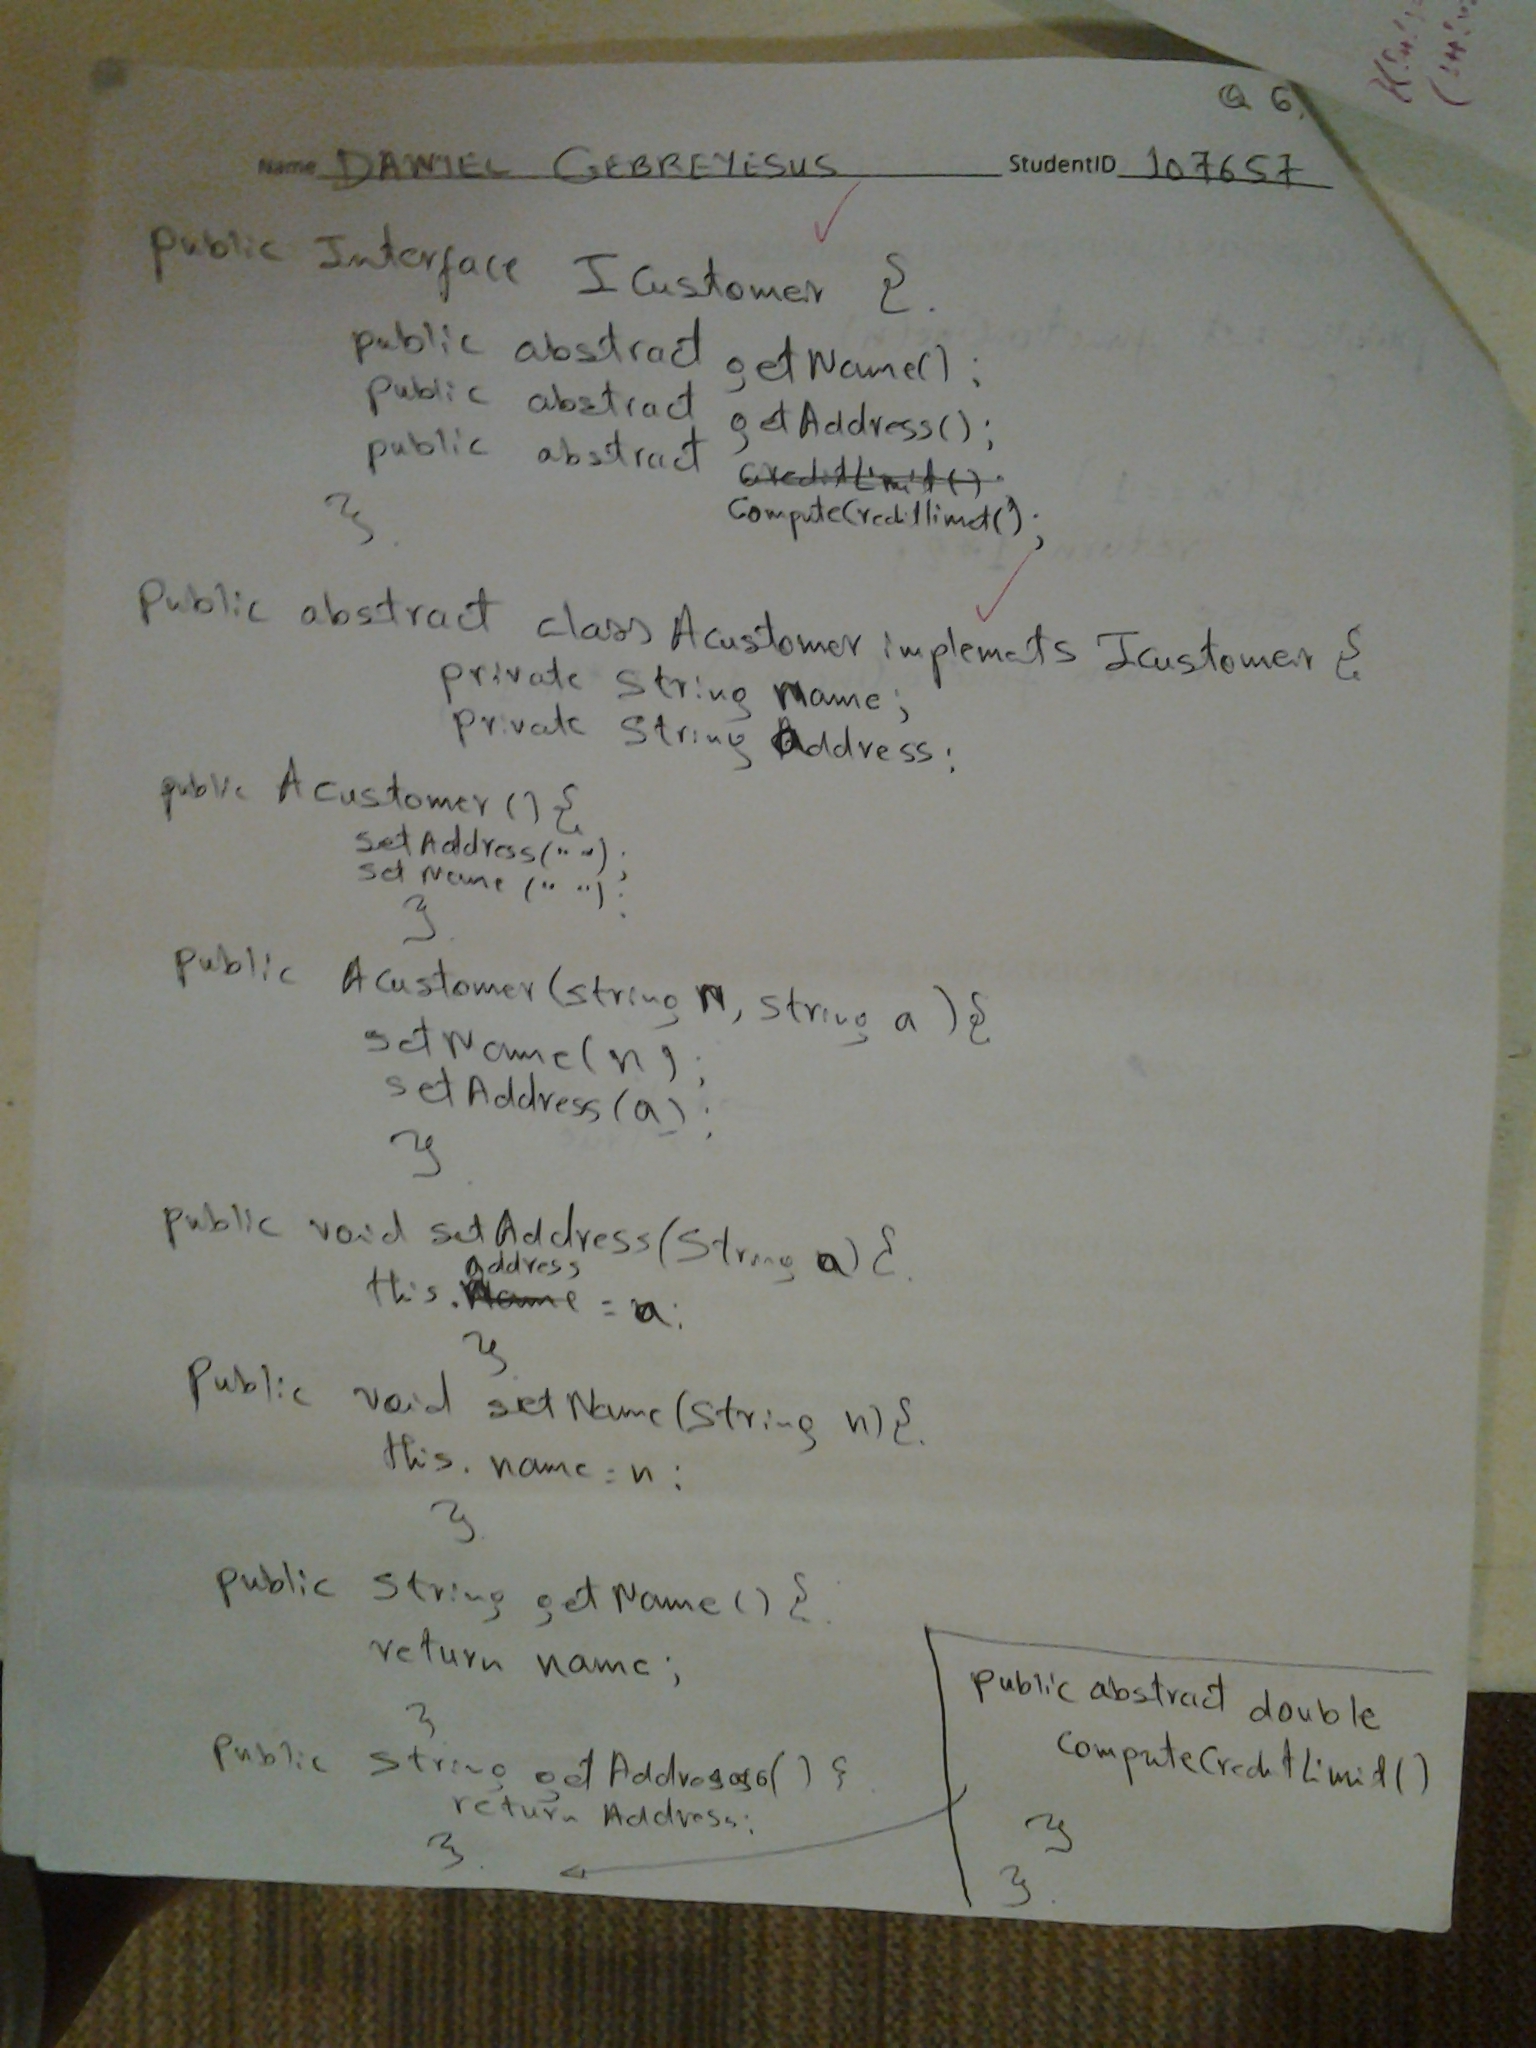 Q 6.
Name DANIEL GEBREYESUS StudentID 107657
public Interface ICustomer {.
public abstract getName();
public abstract getAddress();
public abstract CreditLimit()
ComputeCreditlimet();
}.
Public abstract class Acustomer implemets Icustomer {
private String Name;
private String Address;
public Acustomer () {
setAddress(" ");
set Name (" ");
}.
public Acustomer(string N, string a ) {
setName(n);
setAddress(a);
}.
public void setAddress(String a) {.
address
this.Name = a;
}
Public void setName(String n) {.
this. name = n;
}.
public String getName() {.
return name;
}
public String getAddress() {
return Address;
}.
public abstract double
computeCreditLimit()
}
}.